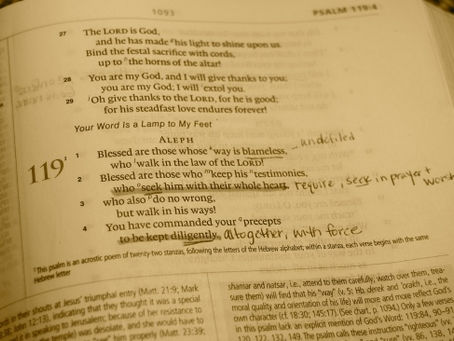 1093
PSALM 119:4
27 The LORD is God,
and he has made his light to shine upon us.
Bind the festal sacrifice with cords,
up to the horns of the altar!
28 You are my God, and I will give thanks to you;
you are my God; I will extol you.
29 Oh give thanks to the LORD, for he is good;
for his steadfast love endures forever!
Your Word Is a Lamp to My Feet
ALEPH
119
1 Blessed are those whose way is blameless, undefiled
who walk in the law of the LORD!
2 Blessed are those who keep his testimonies,
who seek him with their whole heart, require, seek in prayer + worship
3 who also do no wrong,
but walk in his ways!
4 You have commanded your precepts
to be kept diligently. altogether, with force
This psalm is an acrostic poem of twenty-two stanzas, following the letters of the Hebrew alphabet; within a stanza, each verse begins with the same
Hebrew letter
shouts at Jesus' triumphal entry (Matt. 21:9; Mark
John 12:13), indicating that they thought it was a special
speaking to Jerusalem; because of her resistance to
temple) was desolate, and she would have to
him properly (Matt. 23:39;
shamar and natsar, i.e., attend to them carefully, watch over them, trea-
sure them) will find that his "way" (v. 5; Hb. derek and 'orakh, i.e., the
moral quality and orientation of his life) will more and more reflect God's
own character (cf. 18:30; 145:17). (See chart, p. 1094.) Only a few verses
in this psalm lack an explicit mention of God's Word: 119:84, 90–91
120, 122, 132, 149. The psalm calls these instructions "righteous"